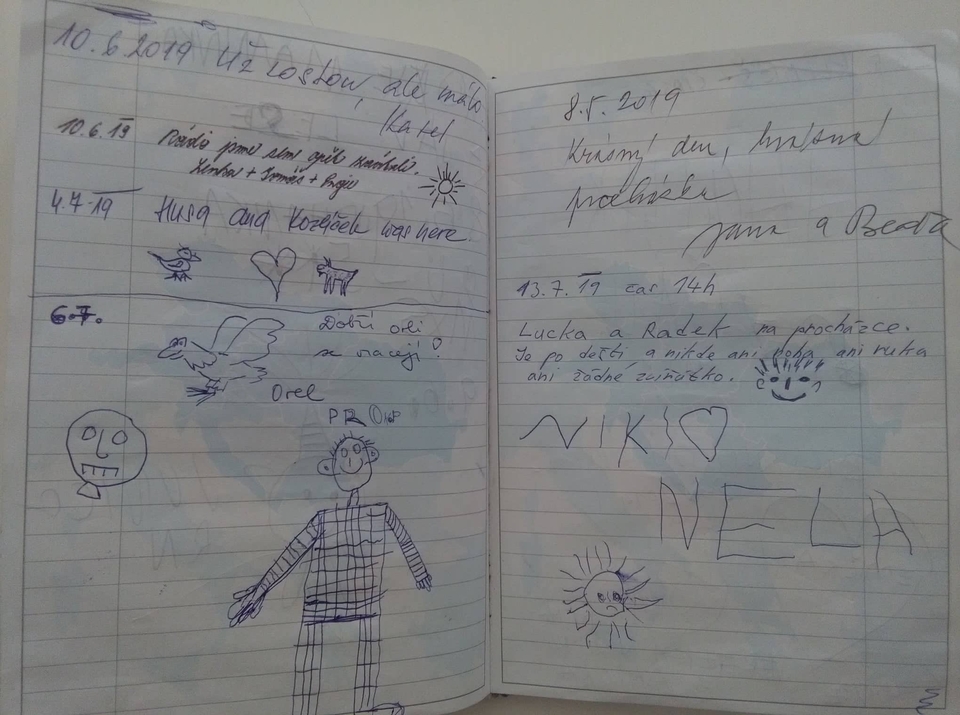 10.6 2019 Už rostou, ale málo
Karel
10.6.19 Rádi jsme sem opět
Lenka + Tomáš +
4.7.19 Husa and Kozáček was here.
6.7.
Dobří orli
se vracejí!
Orel
8.5.2019
Krásný den, krásná
procházka
Jana a Beata
13.7.19 čas 14h
Lucka a Radek na procházce.
Je po dešti, a nikde ani noha, ani ruka
ani žádné zvířátko.
NIK
NELA